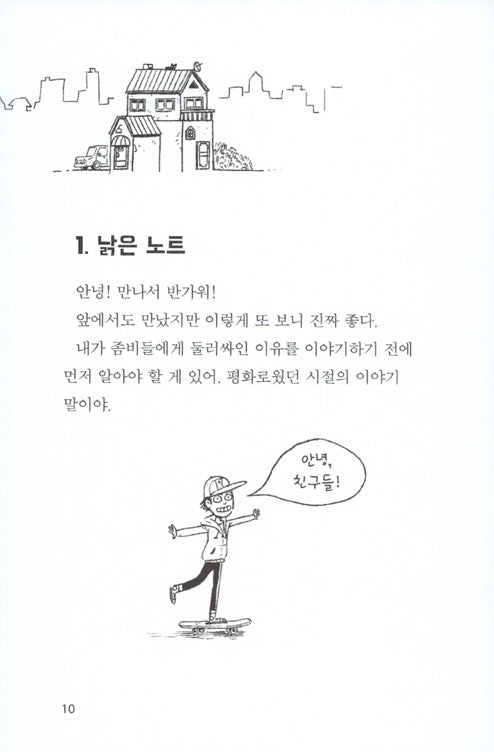 1. 낡은 노트
안녕! 만나서 반가워!
앞에서도 만났지만 이렇게 또 보니 진짜 좋다.
내가 좀비들에게 둘러싸인 이유를 이야기하기 전에
먼저 알아야 할 게 있어. 평화로웠던 시절의 이야기
말이야.
안녕,
친구들!
10